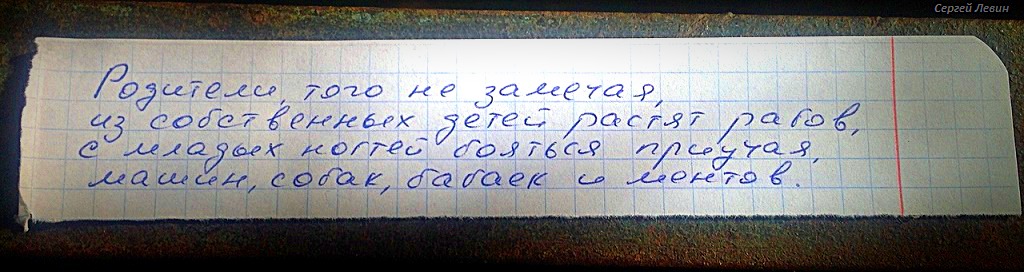 Сергей Левин
Родители, того не замечая,
из собственных детей растят рабов,
с младых ногтей бояться приучая,
машин, собак, бабаек и ментов.